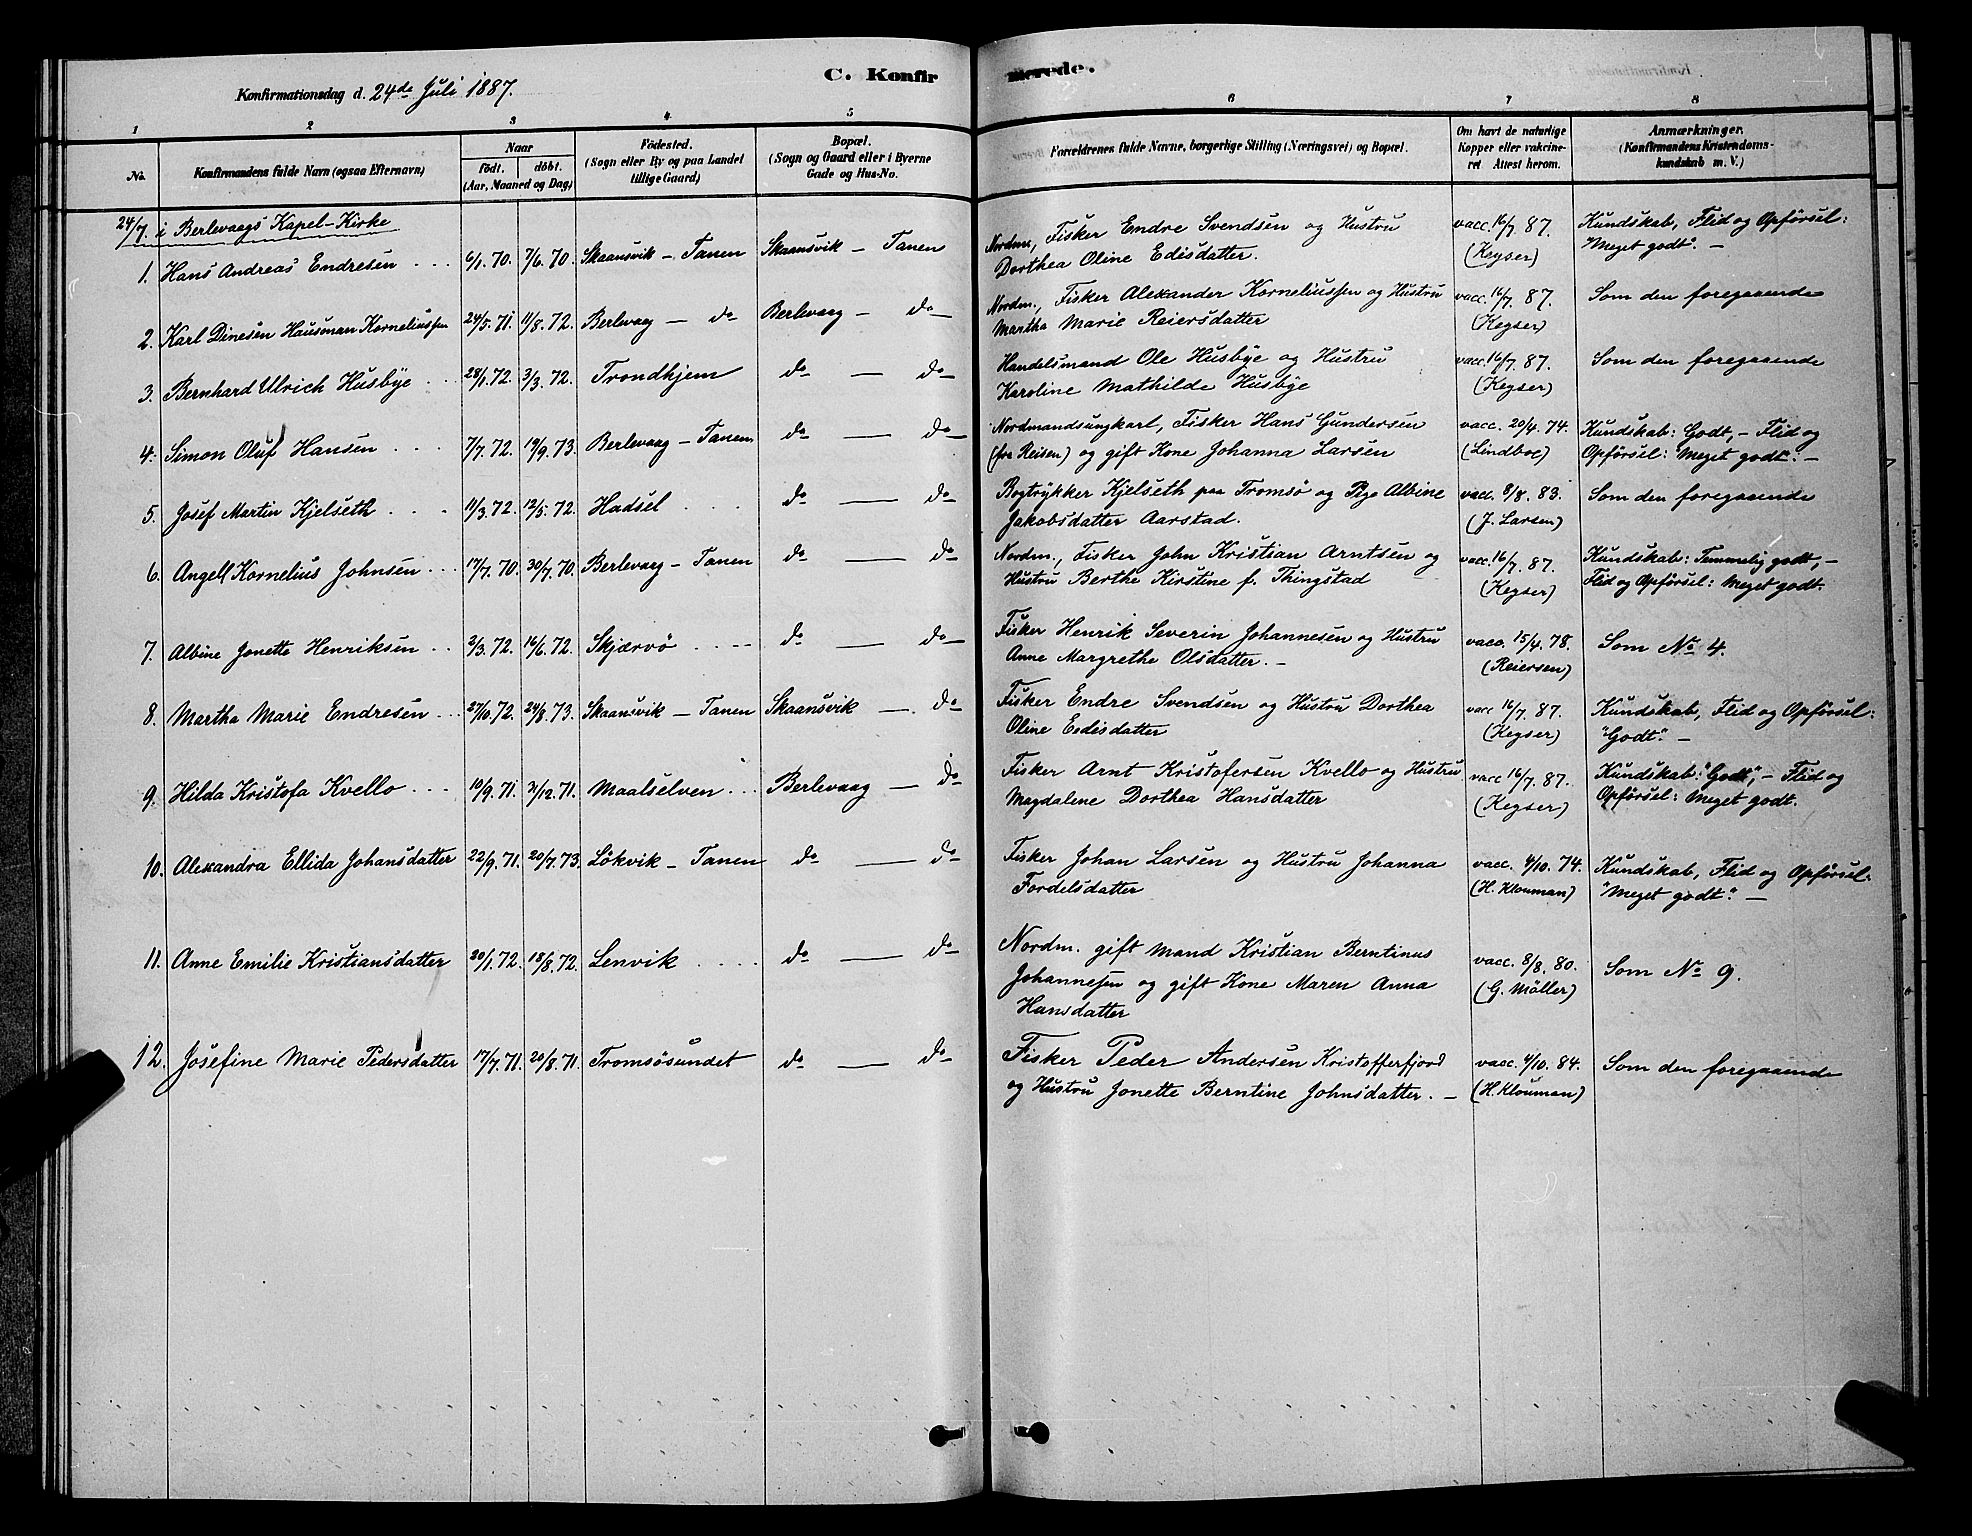 C. Konfirmerede.
Konfirmationsdag d. 24de Juli 1887.
1 2 3 4 5 6 7 8
No. Konfirmandens fulde Navn (ogsaa Efternavn) Naar födt. döbt. (Aar, Maaned og Dag) Födested. (Sogn eller By og paa Landet tillige Gaard) Bopæl. (Sogn og Gaard eller i Byerne Gade og Hus-No. Forældrenes fulde Navne, borgerlige Stilling (Næringsvei) og Bopæl. Om havt de naturlige Kopper eller vakcineret Attest herom. Anmærkninger. (Konfirmandens Kristendomskundskab m. V.)
24/7. i Berlevaags Kapel-Kirke
1. Hans Andreas Endresen 6/1. 70. 7/6. 70. Skaansvik – Tanen Skaansvik – Tanen Nordm., Fisker Endre Svendsen og Hustru vacc. 16/7. 87. Kundskab, Flid og Opførsel:
Dorthea Oline Edisdatter. (Keyser) "Meget godt". –
2. Karl Dinesen Hausman Korneliussen 24/5. 71. 11/8. 72. Berlevaag – do Berlevaag – do Nordm., Fisker Alexander Korneliussen og Hustru vacc. 16/7. 87. Som den foregaaende
Martha Marie Reiersdatter (Keyser)
3. Bernhard Ulrich Husbye 28/1. 72. 3/3. 72. Trondhjem do – do Handelsmand Ole Husbye og Hustru vacc. 16/7. 87. Som den foregaaende
Karoline Mathilde Husbye (Keyser)
4. Simon Oluf Hansen 7/7. 72. 19/9. 73. Berlevaag – Tanen do – do Nordmandsungkarl, Fisker Hans Gundersen vacc. 20/4. 74. Kundskab: Godt, – Flid og
(fra Reisen) og gift Kone Johanna Larsen (Lindboe) Opførsel: "Meget godt". –
5. Josef Martin Kjelseth 11/3. 72. 12/5. 72. Hadsel do – do Bogtrykker Kjelseth paa Tromsö og Pige Albine vacc. 8/8. 83. Som den foregaaende
Jakobsdatter Aarstad. (J. Larsen)
6. Angell Kornelius Johnsen 17/7. 70. 30/7. 70. Berlevaag – Tanen do – do Nordm., Fisker John Kristian Arntsen og vacc. 16/7. 87. Kundskab: Temmelig godt, –
Hustru Berthe Kirstine f. Thingstad (Keyser) Flid og Opførsel: Meget godt.
7. Albine Jonette Henriksen 2/3. 72. 16/6. 72. Skjærvö do – do Fisker Henrik Severin Johannesen og Hustru vacc. 15/4. 78. Som No 4.
Anne Margrethe Olsdatter. – (Reiersen)
8. Martha Marie Endresen 27/10. 72. 24/8. 73. Skaansvik – Tanen Skaansvik – do Fisker Endre Svendsen og Hustru Dorthea vacc 16/7. 87. Kundskab, Flid og Opførsel:
Oline Eedisdatter (Keyser) "Godt". –
9. Hilda Kristofa Kvello 19/9. 71. 31/12. 71. Maalselven Berlevaag – do Fisker Arnt Kristofersen Kvello og Hustru vacc 16/7. 87. Kundskab: "Godt", – Flid og
Magdalene Dorthea Hansdatter (Keyser) Opførsel: Meget godt.
10. Alexandra Ellida Johansdatter 22/9. 71. 20/7. 73. Lökvik – Tanen do – do Fisker Johan Larsen og Hustru Johanna vacc. 4/10. 74. Kundskab, Flid og Opførsel:
Fordelsdatter (H. Klouman) "Meget godt". –
11. Anne Emilie Kristiansdatter 20/1. 72. 18/8. 72. Lenvik do – do Nordm. gift Mand Kristian Berntinus vacc. 8/8. 80. Som No 9.
Johannesen og gift Kone Maren Anna (G. Möller)
Hansdatter
12. Josefine Marie Pedersdatter 17/7. 71. 20/8. 71. Tromsösundet do – do Fisker Peder Andersen Kristofferfjord vacc. 4/10. 84. Som den foregaaende
og Hustru Jonette Berntine Johnsdatter. – (H. Klouman)